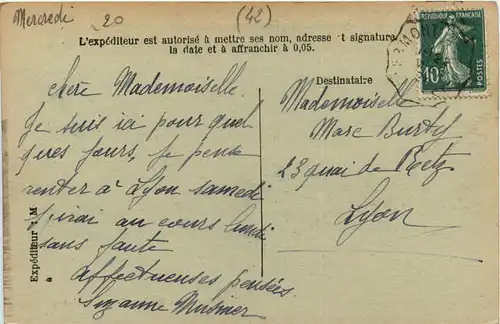 Mercredi 20 (42)
L'expéditeur est autorisé à mettre ses nom, adresse t signature
la date et à affranchir à 0,05.
RÉPUBLIQUE FRANÇAISE
10c
POSTES
chère Mademoiselle
Je suis ici pour quel
ques jours, je pense
rentrer à Lyon samedi
J'irai au cours lundi
sans faute
affectueuses pensées
Suzanne
Expéditeur : M
à
Destinataire
Mademoiselle
Marc
23 quai de Retz
Lyon